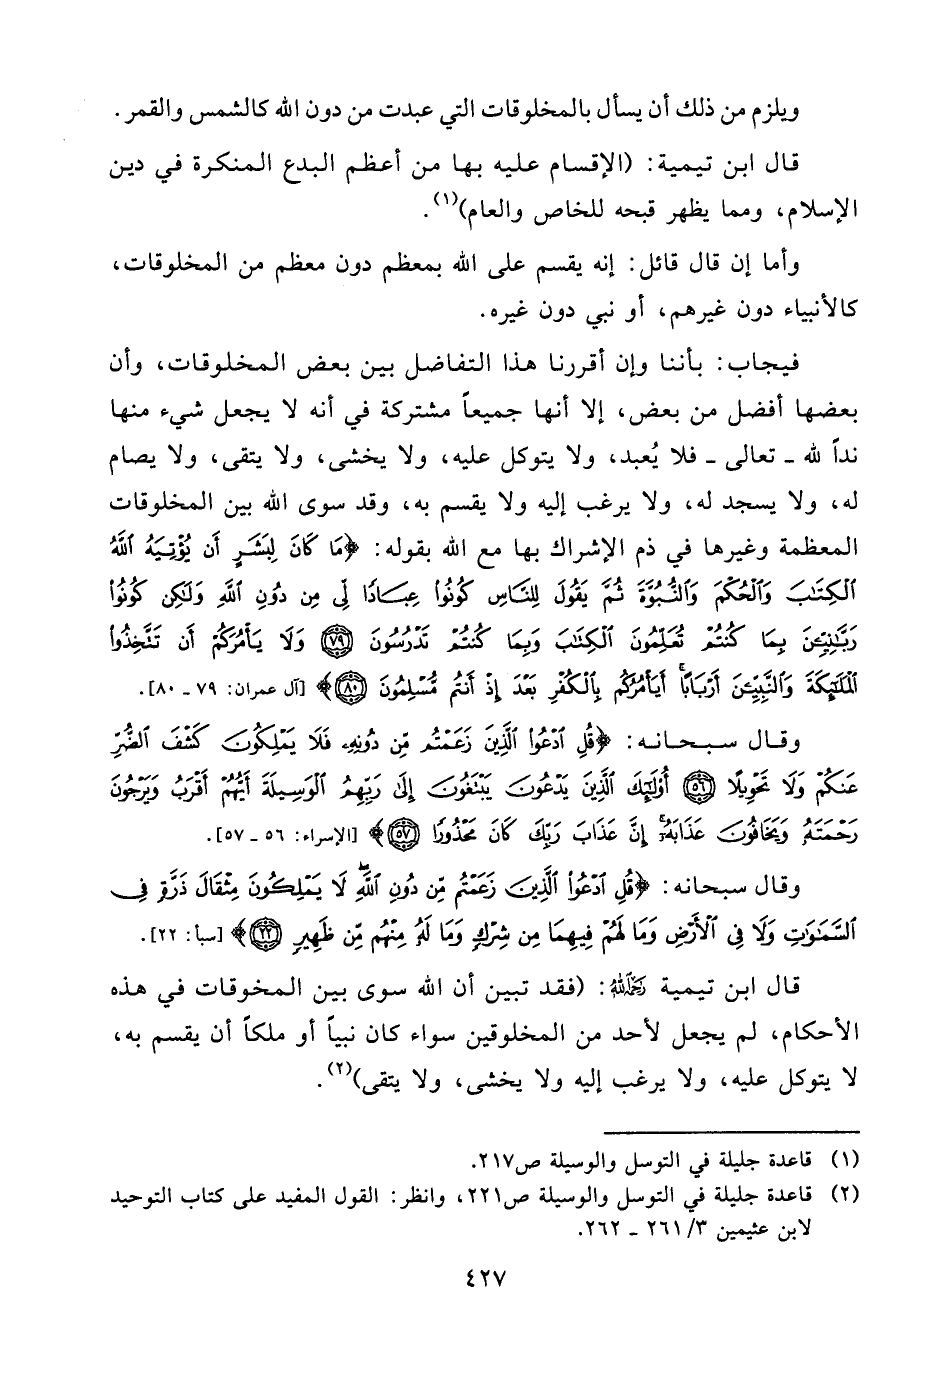 ويلزم من ذلك أن يسأل بالمخلوقات التي عبدت من دون الله كالشمس والقمر.
قال ابن تيمية: (الإقسام عليه بها من أعظم البدع المنكرة في دين
الإسلام، ومما يظهر قبحه للخاص والعام)(١).
وأما إن قال قائل: إنه يقسم على الله بمعظم دون معظم من المخلوقات،
كالأنبياء دون غيرهم، أو نبي دون غيره.
فيجاب: بأننا وإن أقررنا هذا التفاضل بين بعض المخلوقات، وأن
بعضها أفضل من بعض، إلا أنها جميعاً مشتركة في أنه لا يجعل شيء منها
نداً لله ـ تعالى ـ فلا يُعبد، ولا يتوكل عليه، ولا يخشى، ولا يتقى، ولا يصام
له، ولا يسجد له، ولا يرغب إليه ولا يقسم به، وقد سوى الله بين المخلوقات
المعظمة وغيرها في ذم الإشراك بها مع الله بقوله: ﴿مَا كَانَ لِبَشَرٍ أَن يُؤْتِيَهُ ٱللَّهُ
ٱلْكِتَٰبَ وَٱلْحُكْمَ وَٱلنُّبُوَّةَ ثُمَّ يَقُولَ لِلنَّاسِ كُونُوا۟ عِبَادًا لِّى مِن دُونِ ٱللَّهِ وَلَٰكِن كُونُوا۟
رَبَّٰنِيِّـۧنَ بِمَا كُنتُمْ تُعَلِّمُونَ ٱلْكِتَٰبَ وَبِمَا كُنتُمْ تَدْرُسُونَ (٧٩) وَلَا يَأْمُرَكُمْ أَن تَتَّخِذُوا۟
ٱلْمَلَٰٓئِكَةَ وَٱلنَّبِيِّـۧنَ أَرْبَابًا ۗ أَيَأْمُرُكُم بِٱلْكُفْرِ بَعْدَ إِذْ أَنتُم مُّسْلِمُونَ (٨٠)﴾ [آل عمران: ٧٩ ـ ٨٠].
وقال سبحانه: ﴿قُلِ ٱدْعُوا۟ ٱلَّذِينَ زَعَمْتُم مِّن دُونِهِۦ فَلَا يَمْلِكُونَ كَشْفَ ٱلضُّرِّ
عَنكُمْ وَلَا تَحْوِيلًا (٥٦) أُو۟لَٰٓئِكَ ٱلَّذِينَ يَدْعُونَ يَبْتَغُونَ إِلَىٰ رَبِّهِمُ ٱلْوَسِيلَةَ أَيُّهُمْ أَقْرَبُ وَيَرْجُونَ
رَحْمَتَهُۥ وَيَخَافُونَ عَذَابَهُۥٓ ۚ إِنَّ عَذَابَ رَبِّكَ كَانَ مَحْذُورًا (٥٧)﴾ [الإسراء: ٥٦ ـ ٥٧].
وقال سبحانه: ﴿قُلِ ٱدْعُوا۟ ٱلَّذِينَ زَعَمْتُم مِّن دُونِ ٱللَّهِ ۖ لَا يَمْلِكُونَ مِثْقَالَ ذَرَّةٍ فِى
ٱلسَّمَٰوَٰتِ وَلَا فِى ٱلْأَرْضِ وَمَا لَهُمْ فِيهِمَا مِن شِرْكٍ وَمَا لَهُۥ مِنْهُم مِّن ظَهِيرٍ (٢٢)﴾ [سبأ: ٢٢].
قال ابن تيمية رَحِمَهُ اللهُ: (فقد تبين أن الله سوى بين المخوقات في هذه
الأحكام، لم يجعل لأحد من المخلوقين سواء كان نبياً أو ملكاً أن يقسم به،
لا يتوكل عليه، ولا يرغب إليه ولا يخشى، ولا يتقى)(٢).
(١) قاعدة جليلة في التوسل والوسيلة ص٢١٧.
(٢) قاعدة جليلة في التوسل والوسيلة ص٢٢١، وانظر: القول المفيد على كتاب التوحيد
لابن عثيمين ٣/ ٢٦١ ـ ٢٦٢.
٤٢٧